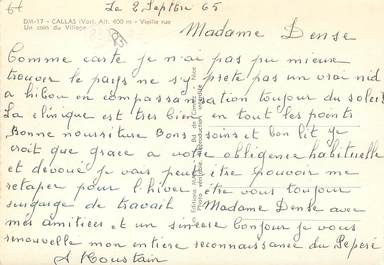 64
Le 2 Septbre 65
DM-17 - CALLAS (Var). Alt. 400 m - Vieille rue
Un coin du Village
Madame Dense
Comme carte je n'ai pas pu mieux
trouver le pays ne s'y prete pas un vrai nid
a hibou en compassanation toujour du soleil
La clinique est tres bien en tout les points
Bonne nourriture Bons soins et bon lit je
croit que grace a votre obligence habituelle
et devoué je vais peut être pouvoir me
retaper pour l'hiver être vous toujour
surgarge de travail Madame Dense avec
mes amitiees et un sincere bonjour je vous
renouvelle mon entiere reconnaissance du Peperé
A Roustain